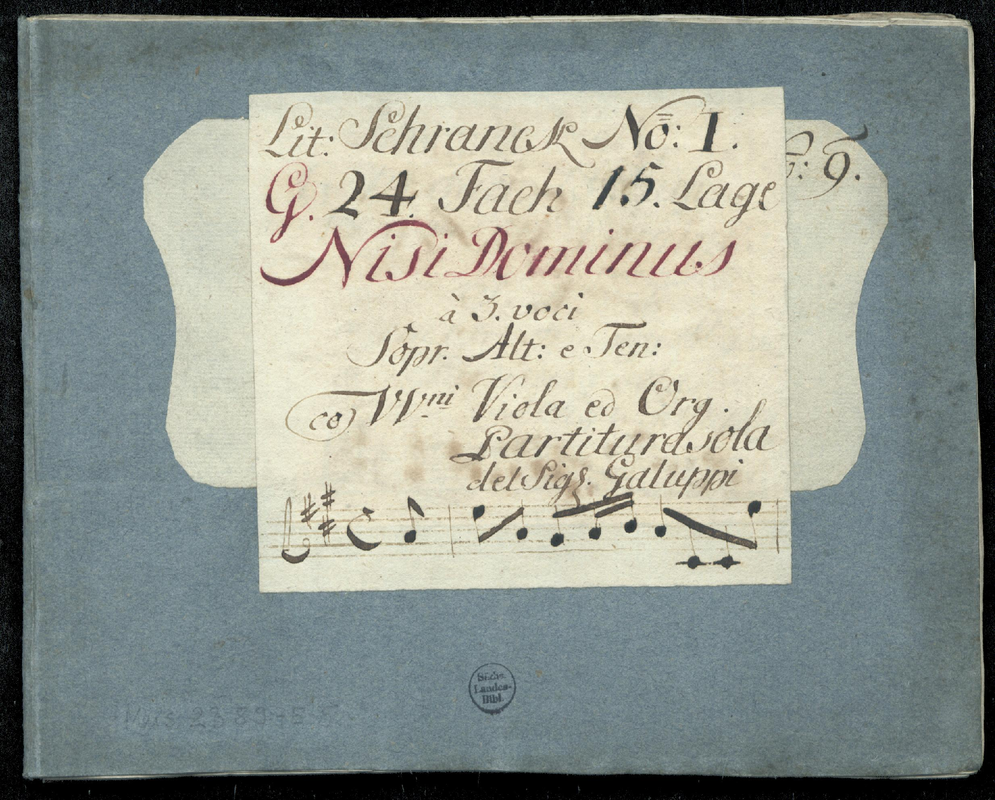 Lit: Schranck No: I.
G. 24. Fach 15. Lage
No: 9.
Nisi Dominus
à 3. voci
Sopr. Alt: e Ten:
co VVni Viola ed Org.
Partitura sola
del Sigr. Galuppi
Sächs.
Landes-
Bibl.